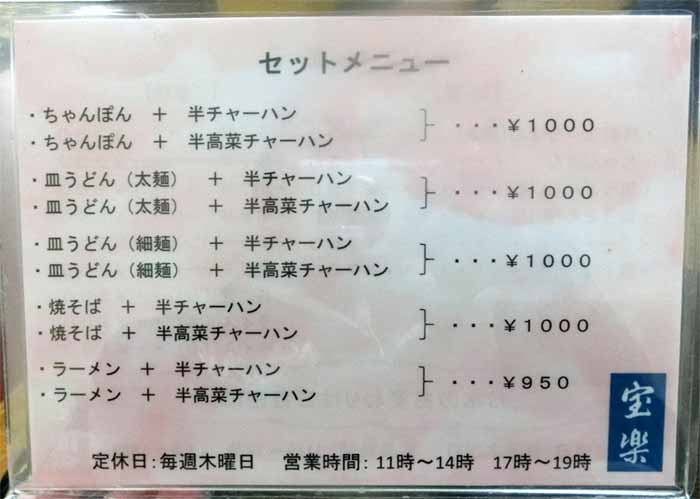 セットメニュー
・ちゃんぽん ＋ 半チャーハン
・ちゃんぽん ＋ 半高菜チャーハン
・・・￥１０００
・皿うどん（太麺） ＋ 半チャーハン
・皿うどん（太麺） ＋ 半高菜チャーハン
・・・￥１０００
・皿うどん（細麺） ＋ 半チャーハン
・皿うどん（細麺） ＋ 半高菜チャーハン
・・・￥１０００
・焼そば ＋ 半チャーハン
・焼そば ＋ 半高菜チャーハン
・・・￥１０００
・ラーメン ＋ 半チャーハン
・ラーメン ＋ 半高菜チャーハン
・・・￥９５０
宝楽
定休日：毎週木曜日 営業時間： 11時～14時 17時～19時